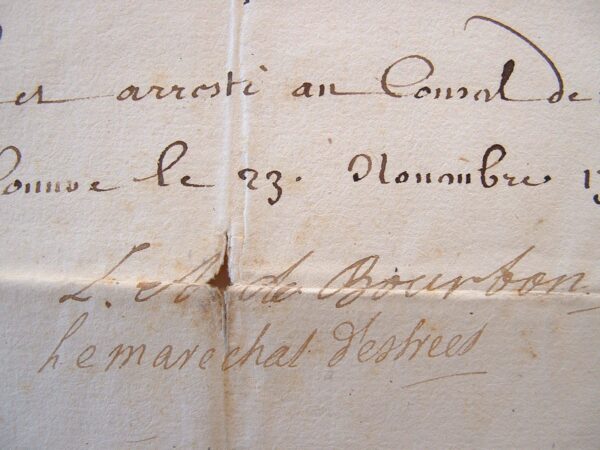 et arresté au Conseil de
Louvre le 23. Nouembre 17
L. A. de Bourbon
Le marechal d'estrees